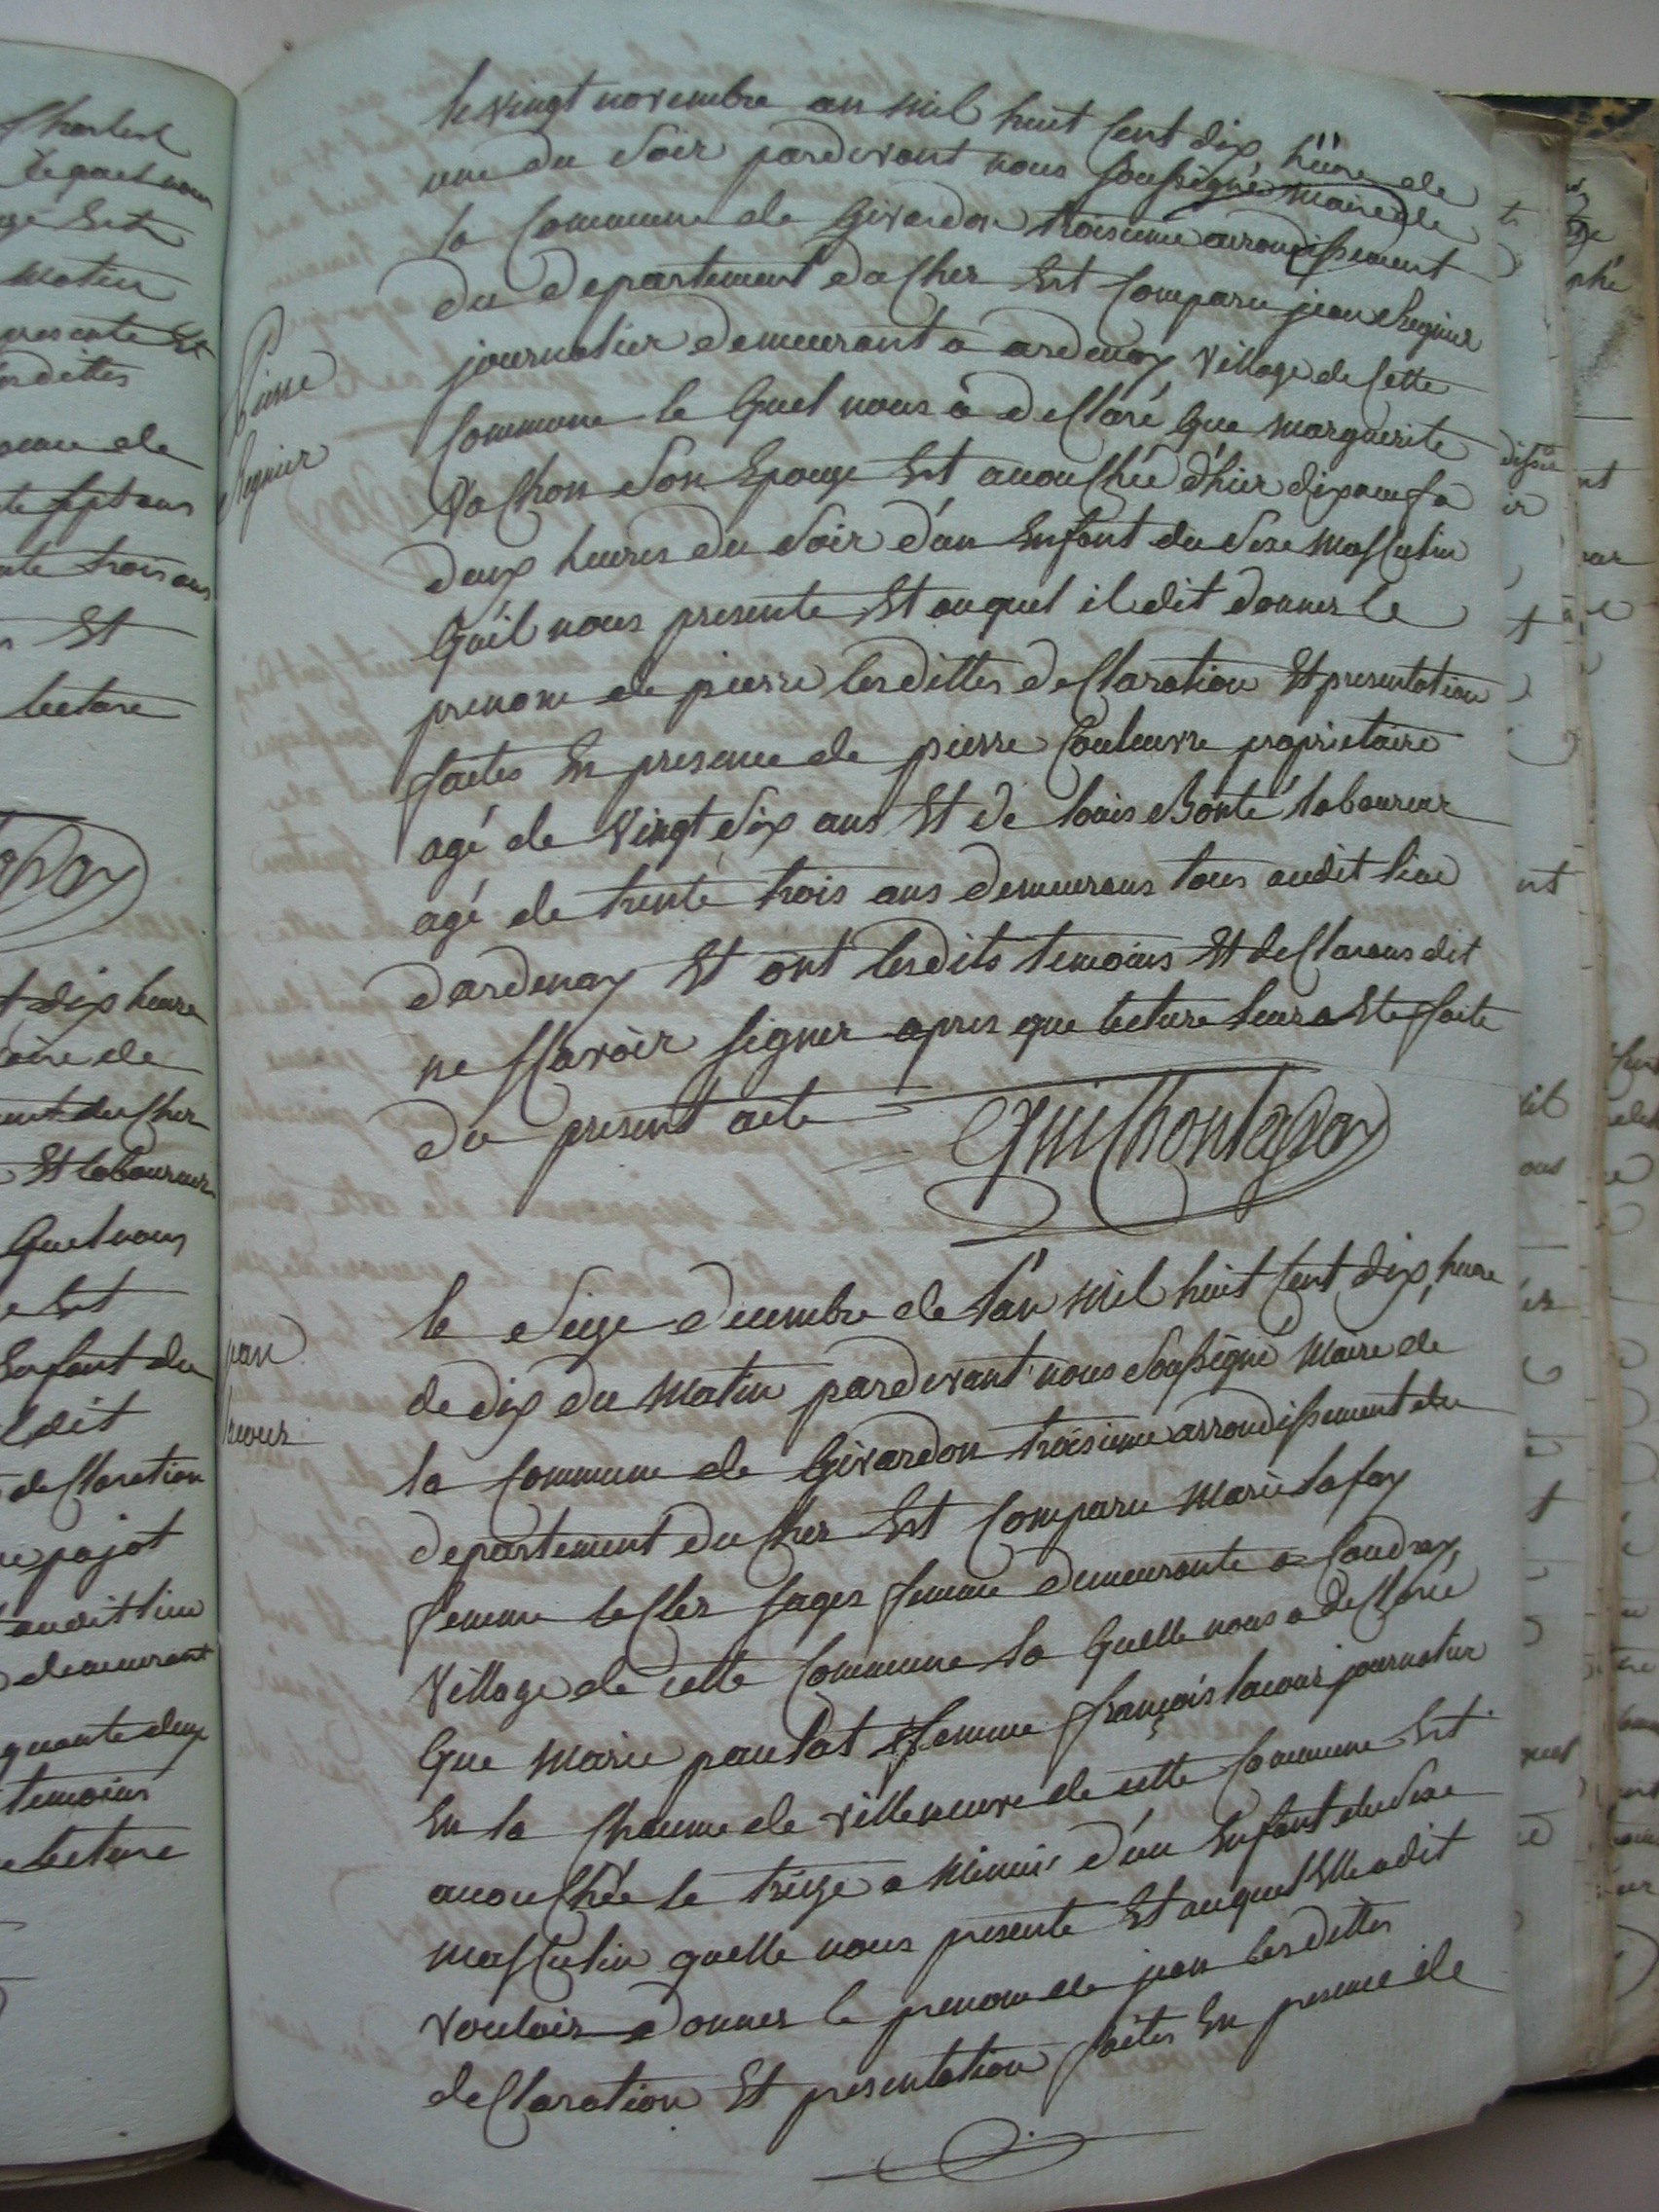 le vingt novembre an mil huit Cent dix, hëure de
une du Soir pardevant nous Soussigné maire de
la Commune de Givardon troisieme arrondissement
du departement du Cher Est Comparu jean Regnier
journalier demeurant a ardenay village de Cette
Commune le Quel nous à declaré Que marguerite
Vachon Son Epouze Est accouchée d'hier dixneuf a
deux heures du Soir d'un Enfant du Sexe masculin
Qu'il nous presente Et auquel il dit donner le
prenom de pierre lesdittes declaration Et presentation
faites En presence de pierre Couleuvre proprietaire
agé de vingt Six ans Et de louis Bonté laboureur
agé de trente trois ans demeurans tous audit lieu
dardenay Et ont lesdits temoins Et declarans dit
ne Scavoir Signer apres que lecture leur a Eté faite
du present acte
Pierre
Regnier
le Seize decembre de l'an mil huit Cent dix, heure
de dix du matin pardevant nous Soussigné maire de
la Commune de Givardon troisieme arrondissement du
departement du Cher Est Comparu marie lafay
femme leCler sages femme demeurante a Coudray
village de cette Commune la Quelle nous a declaré
Que marie paulat femme françois lacour journalier
En la Chaume de villeneuve de cette Commune Est
accouchée le treize a minuit d'un Enfant du Sexe
masculin quelle nous presente Et auquel Elle a dit
vouloir donner le prenom de jean lesdittes
declaration Et presentation faites En presence de
jean
lacour
Charles
le quel nous
Est
matin
presente Et
lesdittes
de
te sept ans
te trois ans
Et
lecture
t dix heure
maire de
ment du Cher
Et laboureur
Quel nous
Est
Enfant du
il dit
declaration
pajot
audit lieu
demeurant
quante deux
temoins
lecture